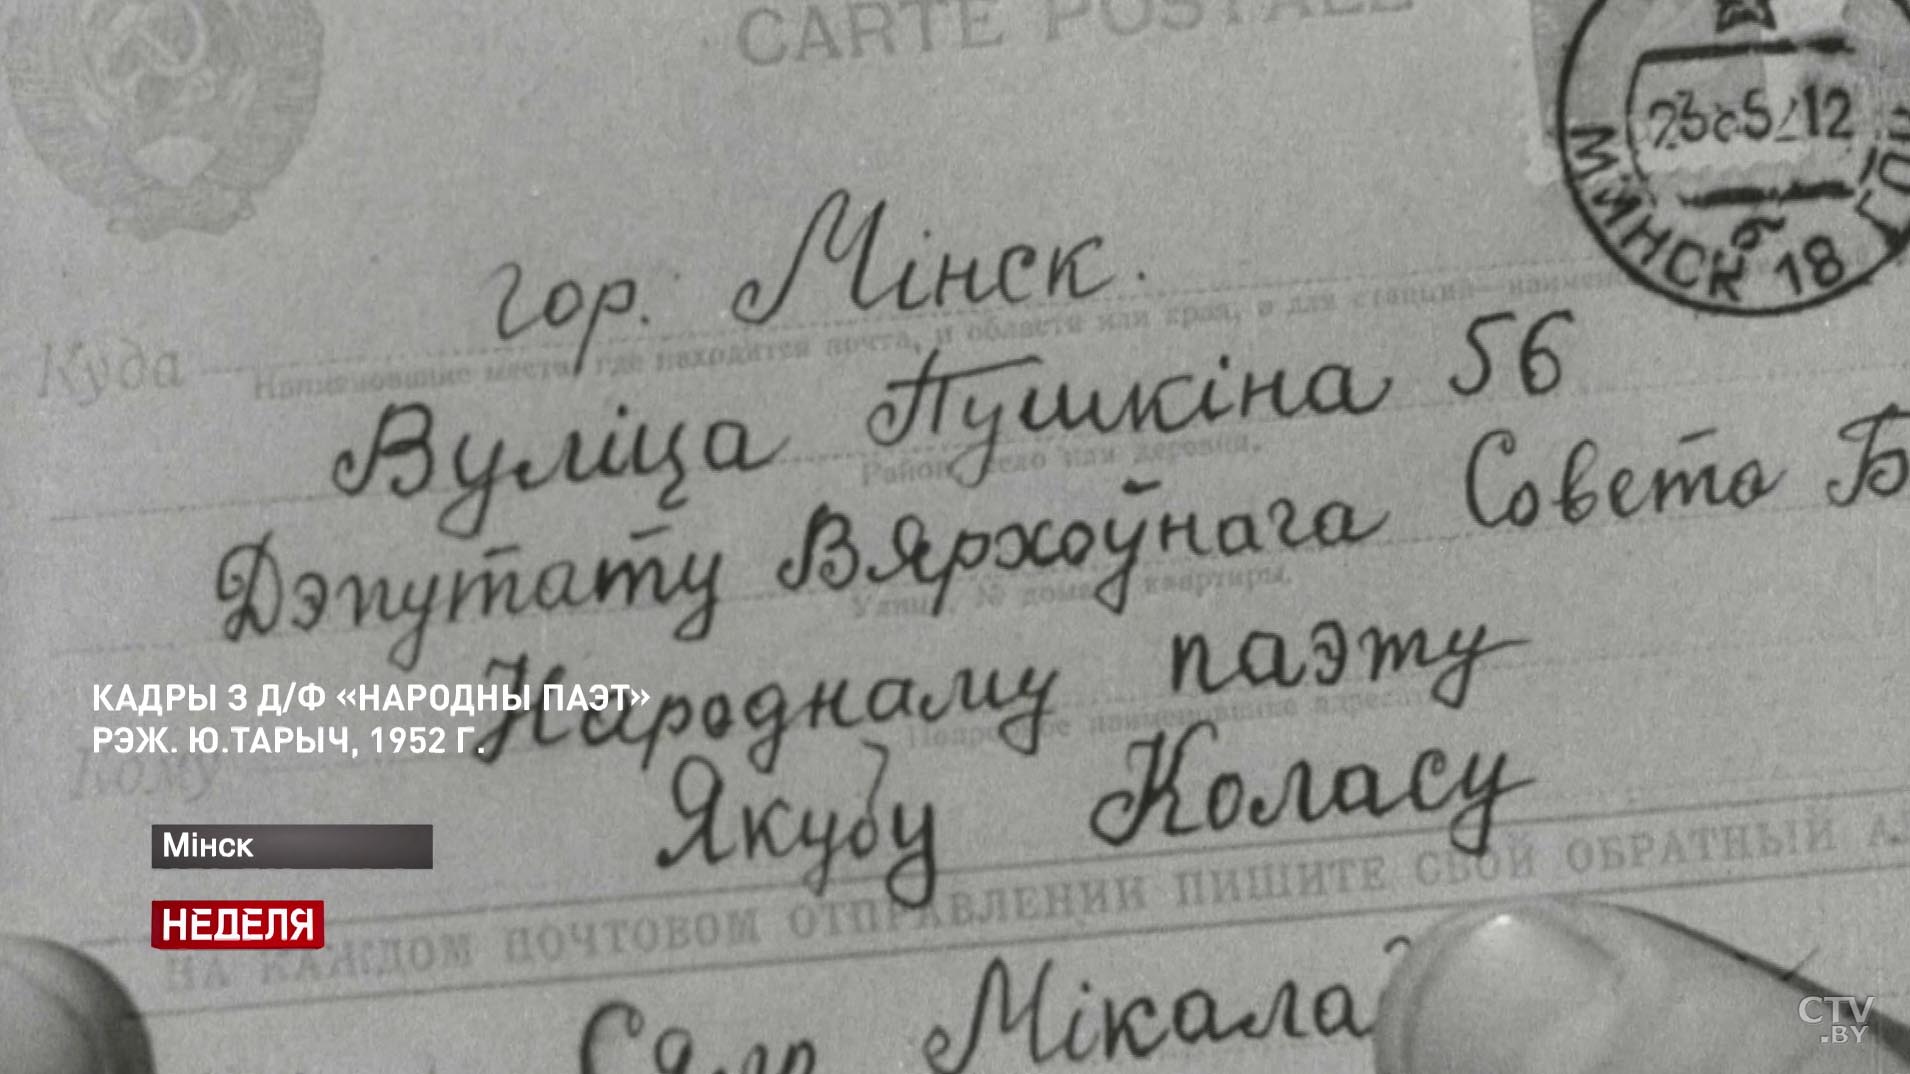 CARTE POSTALE
23 6 52 12
МИНСК 18
б
гор. Мінск.
Куда
Наименование места, где находится почта, и области или края, а для станций—наимено
Вуліца Пушкіна 56
Район, село или деревня.
Дэпутату Вярхоўнага Совета Б
Улица, № дома, квартиры.
Народнаму паэту
КАДРЫ З Д/Ф «НАРОДНЫ ПАЭТ»
РЭЖ. Ю.ТАРЫЧ, 1952 Г.
Подробное наименование адреса
Кому
Якубу Коласу
Мінск
НА КАЖДОМ ПОЧТОВОМ ОТПРАВЛЕНИИ ПИШИТЕ СВОЙ ОБРАТНЫЙ А
НЕДЕЛЯ
Мікала
CTV
.BY